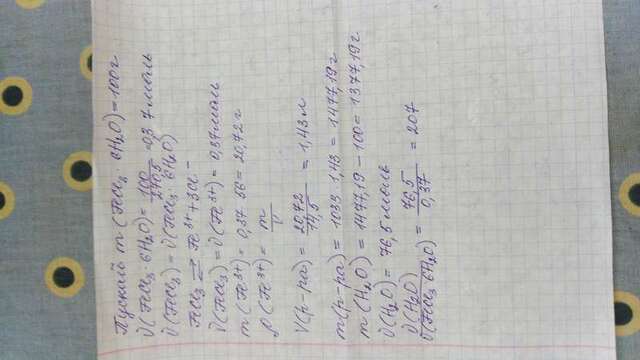 Пускай m (FeCl₃ 6H₂O) = 100г
ν(FeCl₃ 6H₂O) = 100/270,5 = 0,37 моль
ν(FeCl₃) = ν(FeCl₃ · 6H₂O)
FeCl₃ ⇄ Fe³⁺ + 3Cl⁻
ν(FeCl₃) = ν(Fe³⁺) = 0,37 моль
m(Fe³⁺) = 0,37 · 56 = 20,72 г
ρ(Fe³⁺) = m/V
V(р-ра) = 20,72/14,5 = 1,43 л
m(р-ра) = 1033 · 1,43 = 1477,19 г
m(H₂O) = 1477,19 - 100 = 1377,19 г
ν(H₂O) = 76,5 моль
ν(H₂O)/ν(FeCl₃ 6H₂O) = 76,5/0,37 = 207